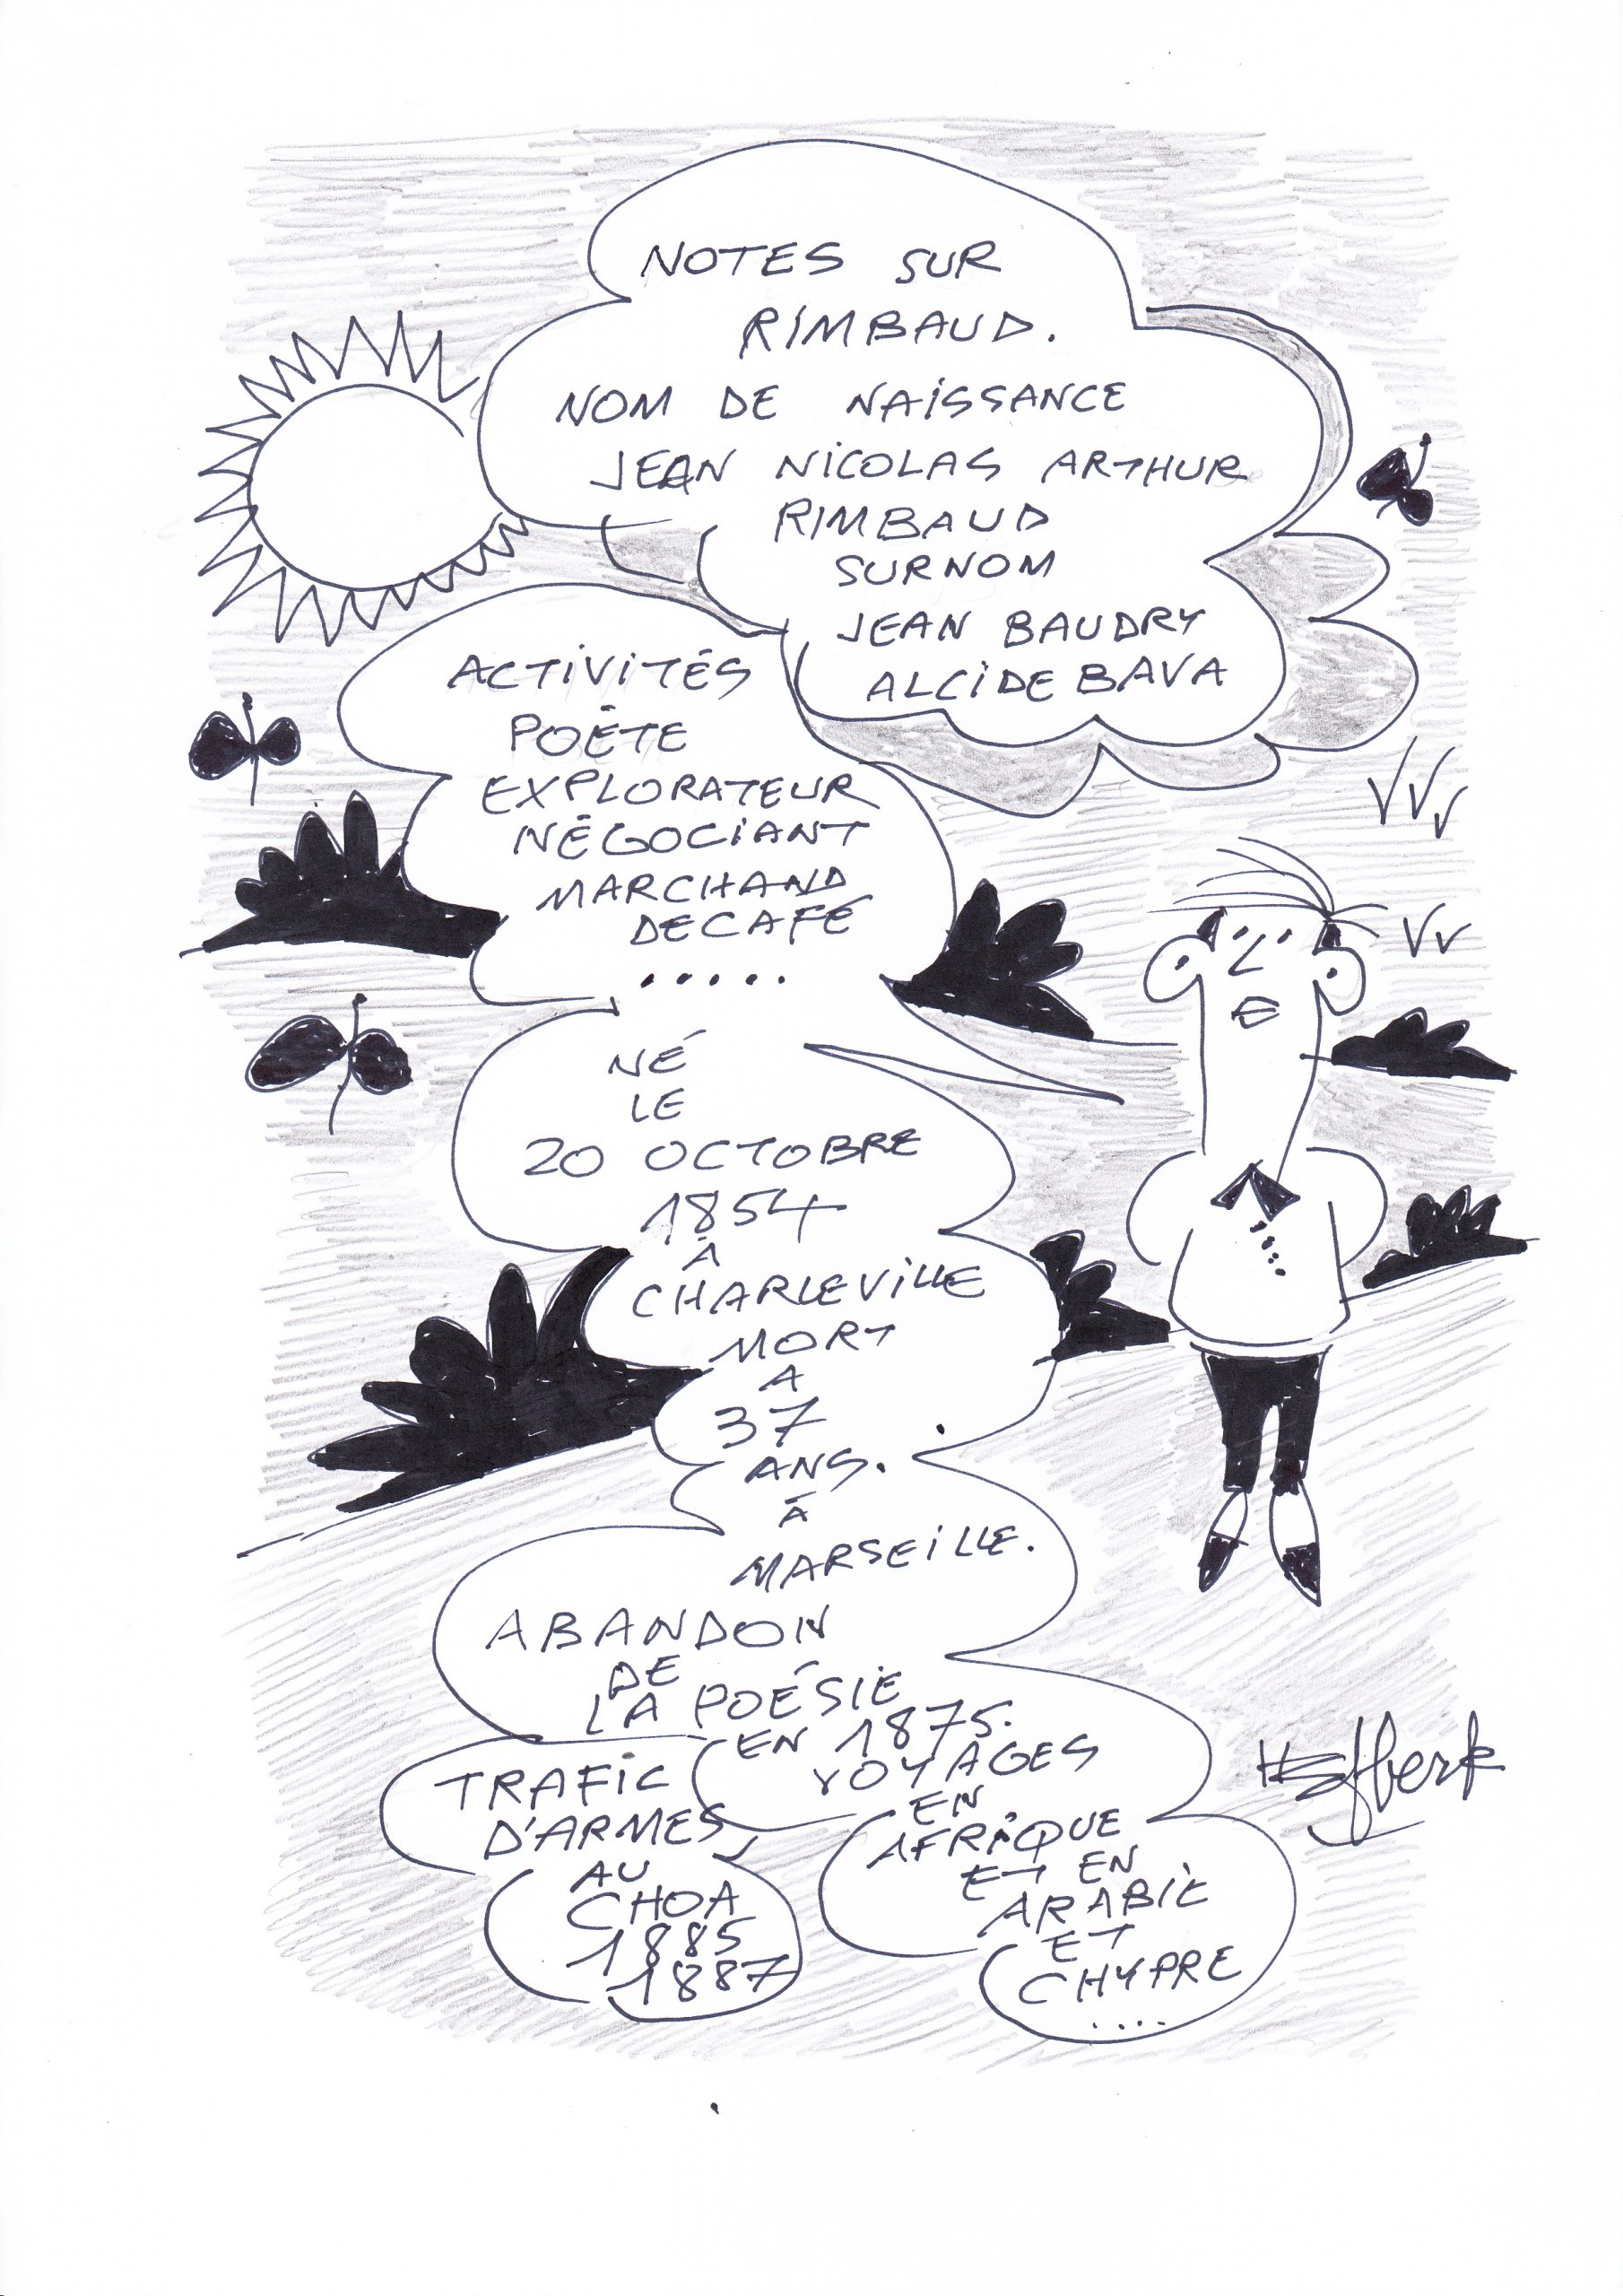 NOTES SUR
RIMBAUD.
NOM DE NAISSANCE
JEAN NICOLAS ARTHUR
RIMBAUD
SURNOM
JEAN BAUDRY
ALCIDE BAVA
ACTIVITÉS
POÈTE
EXPLORATEUR
NÉGOCIANT
MARCHAND
DE CAFÉ
.....
NÉ
LE
20 OCTOBRE
1854
À
CHARLEVILLE
MORT
A
37
ANS.
À
MARSEILLE.
ABANDON
DE
LA POÉSIE
EN 1875.
VOYAGES
EN
AFRIQUE
ET EN
ARABIE
ET
CHYPRE
....
TRAFIC
D'ARMES
AU
CHOA
1885
1887